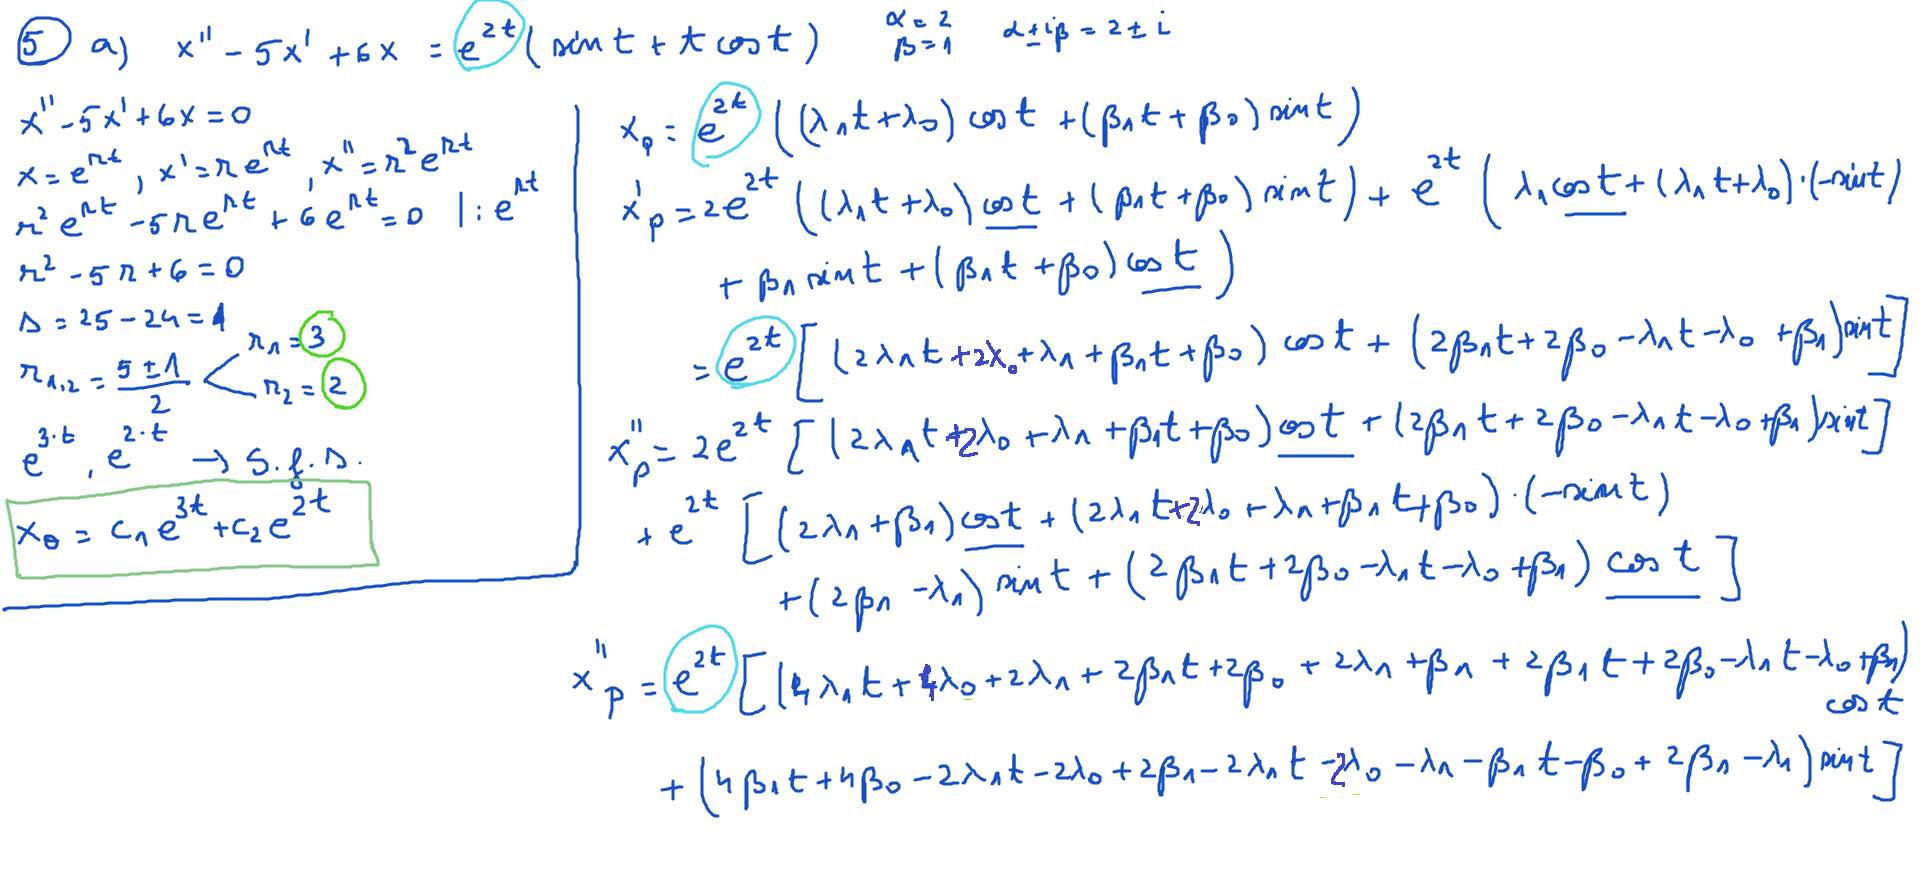 5 a) x'' - 5x' + 6x = e^{2t} ( sin t + t cos t ) α = 2 β = 1 α ± iβ = 2 ± i
x'' - 5x' + 6x = 0
x = e^{rt} , x' = r e^{rt} , x'' = r² e^{rt}
r² e^{rt} - 5r e^{rt} + 6 e^{rt} = 0 | : e^{rt}
r² - 5r + 6 = 0
Δ = 25 - 24 = 1
r_{1,2} = (5 ± 1)/2 r₁ = 3 r₂ = 2
e^{3·t} , e^{2·t} → s.f.s.
x₀ = c₁ e^{3t} + c₂ e^{2t}
x_p = e^{2t} ((λ₁t + λ₀) cos t + (β₁t + β₀) sin t)
x'_p = 2e^{2t} ((λ₁t + λ₀) cos t + (β₁t + β₀) sin t) + e^{2t} ( λ₁ cos t + (λ₁t + λ₀)·(-sin t)
+ β₁ sin t + (β₁t + β₀) cos t )
= e^{2t} [ (2λ₁t + 2λ₀ + λ₁ + β₁t + β₀) cos t + (2β₁t + 2β₀ - λ₁t - λ₀ + β₁) sin t ]
x''_p = 2e^{2t} [ (2λ₁t + 2λ₀ + λ₁ + β₁t + β₀) cos t + (2β₁t + 2β₀ - λ₁t - λ₀ + β₁) sin t ]
+ e^{2t} [ (2λ₁ + β₁) cos t + (2λ₁t + 2λ₀ + λ₁ + β₁t + β₀)·(-sin t)
+ (2β₁ - λ₁) sin t + (2β₁t + 2β₀ - λ₁t - λ₀ + β₁) cos t ]
x''_p = e^{2t} [ (4λ₁t + 4λ₀ + 2λ₁ + 2β₁t + 2β₀ + 2λ₁ + β₁ + 2β₁t + 2β₀ - λ₁t - λ₀ + β₁)
cos t
+ (4β₁t + 4β₀ - 2λ₁t - 2λ₀ + 2β₁ - 2λ₁t - 2λ₀ - λ₁ - β₁t - β₀ + 2β₁ - λ₁) sin t ]